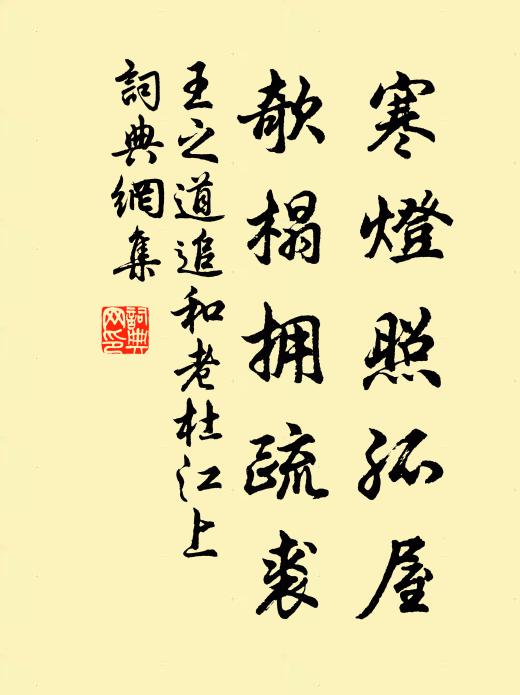 寒燈照孤屋
欹榻拥疏裘
王之道追和老杜江上
詞典網集
詞典網印